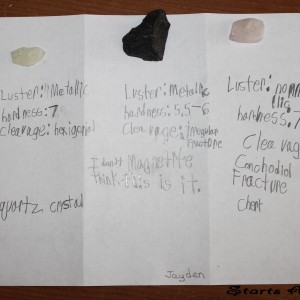 Luster: Metallic
hardness: 7
Clearage: hexigonal
quartz crystal
Luster: Metallic
hardness: 5.5-6
Clea vage: Irregular
Fracture
I don't Magnetite
think this is it.
Luster: nonmetallic
hardness: 7
Clea vage
Conchodial
Fracture
Chert
Jayden